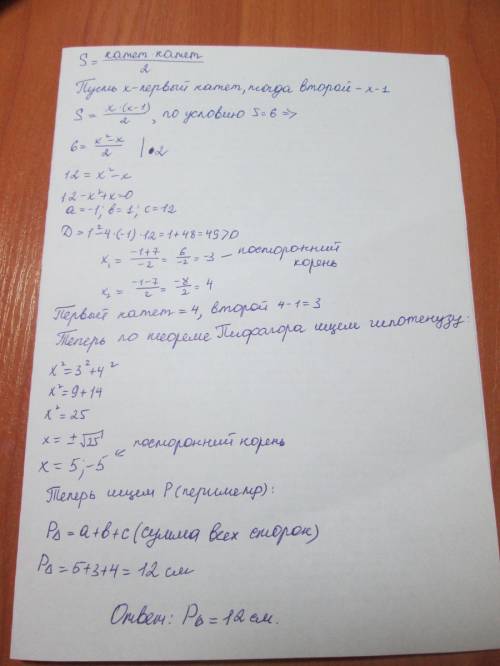 S = катет·катет / 2
Пусть x-первый катет, тогда второй - x-1
S = x·(x-1) / 2, по условию S=6 =>
6 = x²-x / 2 | •2
12 = x²-x
12-x²+x=0
a=-1; b=1; c=12
D = 1²-4·(-1)·12=1+48=49>0
x₁ = -1+7 / -2 = 6 / -2 = -3 — посторонний корень
x₂ = -1-7 / 2 = -8 / 2 = 4
Первый катет = 4, второй 4-1=3
Теперь по теореме Пифагора ищем гипотенузу:
x²=3²+4²
x²=9+14
x²=25
x=±√25
x=5;-5 ← посторонний корень
Теперь ищем P(периметр):
P△=a+b+c (сумма всех сторон)
P△=5+3+4=12 см
Ответ: P△=12 см.